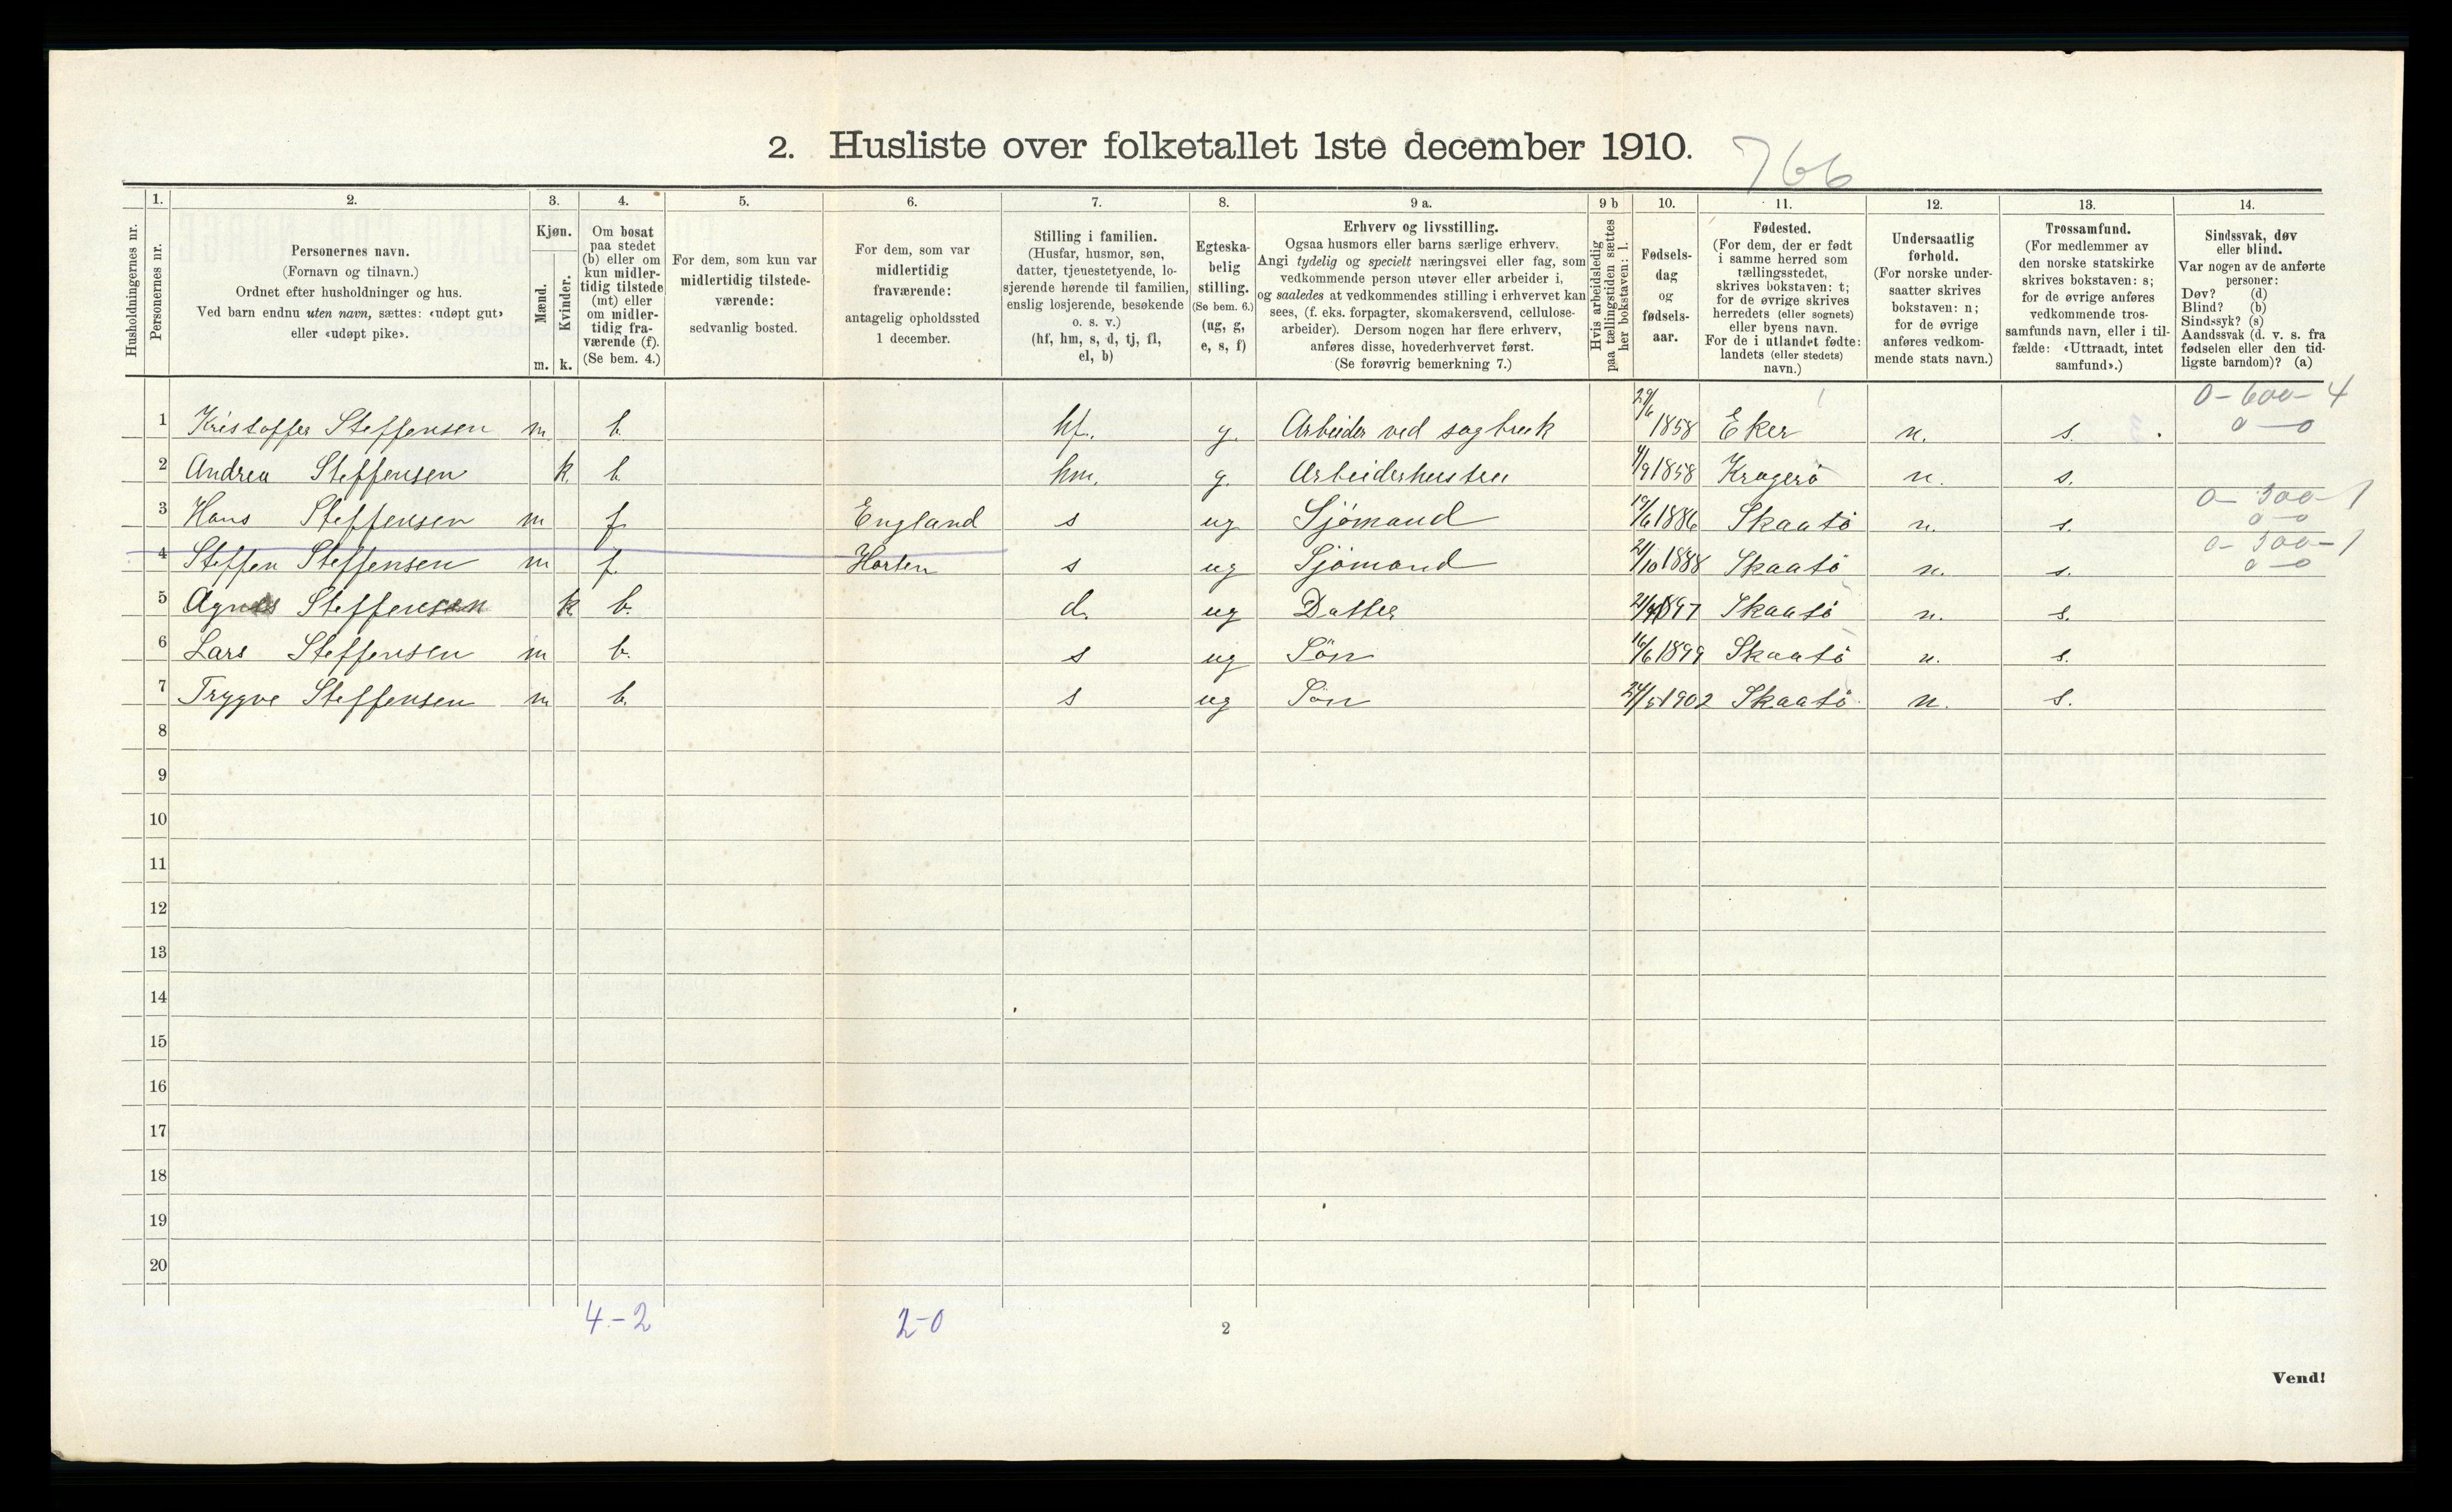 2. Husliste over folketallet 1ste december 1910.
766
Husholdningernes nr.
1.
Personernes nr.
2.
Personernes navn.
(Fornavn og tilnavn.)
Ordnet efter husholdninger og hus.
Ved barn endnu uten navn, sættes: «udøpt gut»
eller «udøpt pike».
3.
Kjøn.
Mænd.
Kvinder.
m. k.
4.
Om bosat
paa stedet
(b) eller om
kun midler-
tidig tilstede
(mt) eller
om midler-
tidig fra-
værende (f).
(Se bem. 4.)
5.
For dem, som kun var
midlertidig tilstede-
værende:
sedvanlig bosted.
6.
For dem, som var
midlertidig
fraværende:
antagelig opholdssted
1 december.
7.
Stilling i familien.
(Husfar, husmor, søn,
datter, tjenestetyende, lo-
sjerende hørende til familien,
enslig losjerende, besøkende
o. s. v.)
(hf, hm, s, d, tj, fl,
el, b)
8.
Egteska-
belig
stilling.
(Se bem. 6.)
(ug, g,
e, s, f)
9 a.
Erhverv og livsstilling.
Ogsaa husmors eller barns særlige erhverv.
Angi tydelig og specielt næringsvei eller fag, som
vedkommende person utøver eller arbeider i,
og saaledes at vedkommendes stilling i erhvervet kan
sees, (f. eks. forpagter, skomakersvend, cellulose-
arbeider). Dersom nogen har flere erhverv,
anføres disse, hovederhvervet først.
(Se forøvrig bemerkning 7.)
9 b
Hvis arbeidsledig
paa tællingstiden sættes
her bokstaven: l.
10.
Fødsels-
dag
og
fødsels-
aar.
11.
Fødested.
(For dem, der er født
i samme herred som
tællingsstedet,
skrives bokstaven: t;
for de øvrige skrives
herredets (eller sognets)
eller byens navn.
For de i utlandet fødte:
landets (eller stedets)
navn.)
12.
Undersaatlig
forhold.
(For norske under-
saatter skrives
bokstaven: n;
for de øvrige
anføres vedkom-
mende stats navn.)
13.
Trossamfund.
(For medlemmer av
den norske statskirke
skrives bokstaven: s;
for de øvrige anføres
vedkommende tros-
samfunds navn, eller i til-
fælde: «Uttraadt, intet
samfund».)
14.
Sindssvak, døv
eller blind.
Var nogen av de anførte
personer:
Døv? (d)
Blind? (b)
Sindssyk? (s)
Aandssvak (d. v. s. fra
fødselen eller den tid-
ligste barndom)? (a)
0-600-4
1 Kristoffer Steffensen m b. hf. g. Arbeider ved sagbruk 29/6 1858 Eker n. s. 0-0
2 Andrea Steffensen k. b. hm. g. Arbeiderhustru 1/9 1858 Kragerö n. s.
0-300-1
3 Hans Steffensen m f. England s ug Sjömand 19/6 1886 Skaatö n. s. 0-0
0-300-1
4 Steffen Steffensen m f. Horten s ug Sjömand 21/10 1888 Skaatö n. s. 0-0
5 Agnes Steffensen k b. d. ug Datter 1897 Skaatö n. s.
6 Lars Steffensen m b. s ug Sön 16/6 1899 Skaatö n. s.
7 Trygve Steffensen m b. s ug Sön 24/5 1902 Skaatö n. s.
8
9
10
11
12
13
14
15
16
17
18
19
20
4-2 2-0
2
Vend!